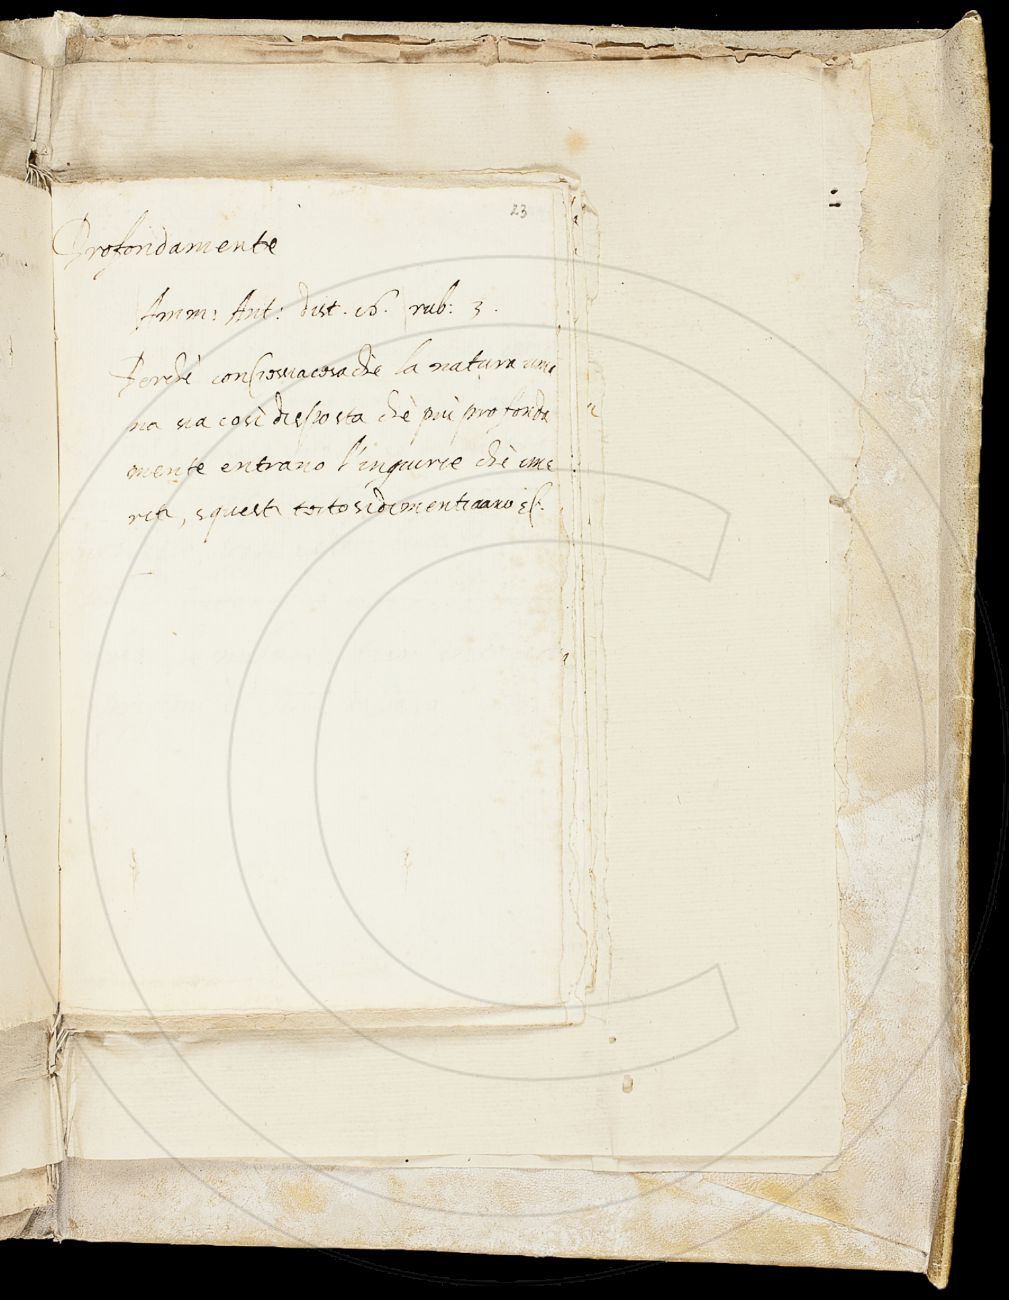 23
Profondamente
Amm: Ant: dist. 16. rub: 3.
Perchè conciosiacosachè la natura uma
na sia così disposta chè più profonda
mente entrano l'ingiurie chè i me
riti, e questi tosto si dimenticano